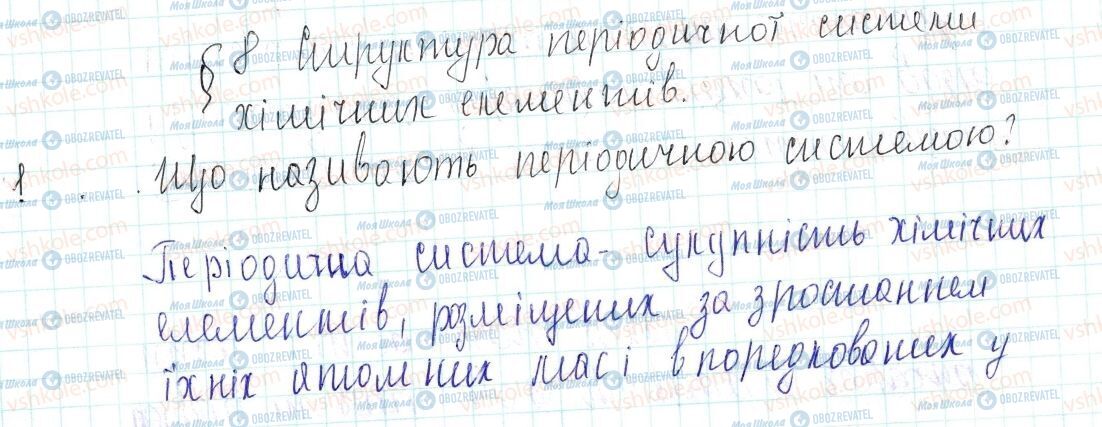 § 8 Структура періодичної системи
хімічних елементів.
1. Що називають періодичною системою?
Періодична система - сукупність хімічних
елементів, розміщених за зростанням
їхніх атомних мас і впорядкованих у